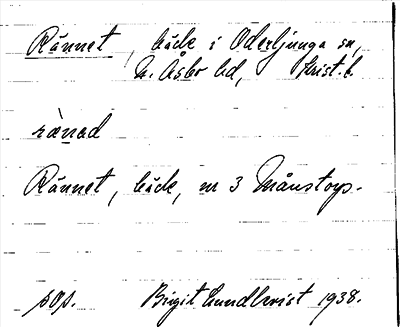 Rännet, bäck i Oderljunga sn,
N. Åsbo hd, Krist. l.
rænəd
Rännet, bäck, nr 3 Månstorp.
sop. Birgit Lundkvist 1938.